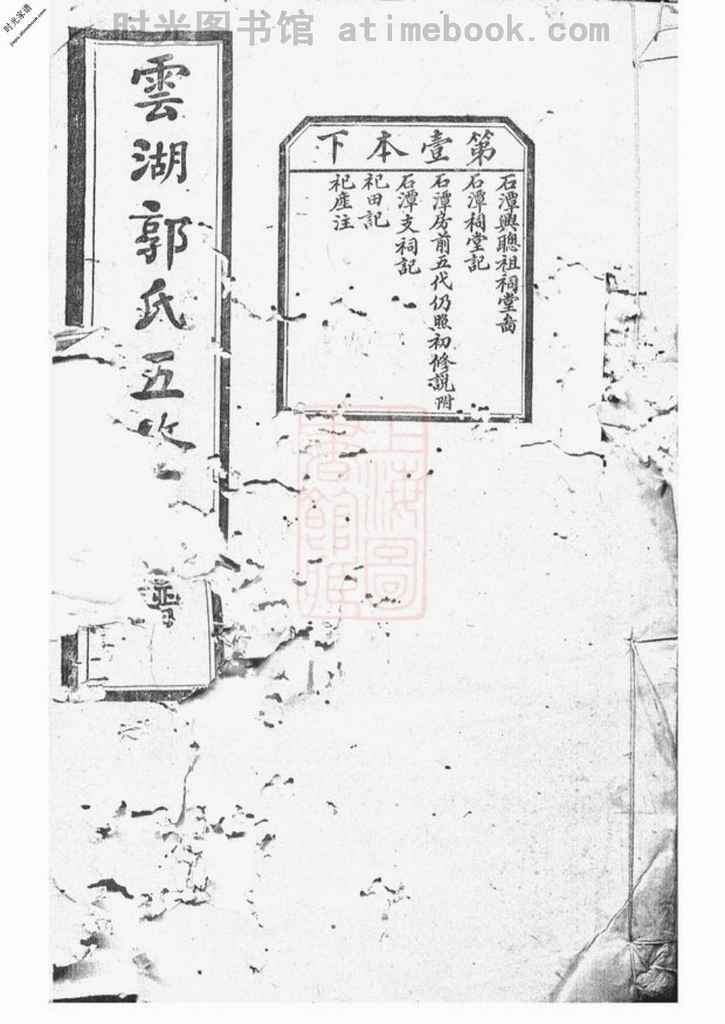 时光图书馆 atimebook.com
时光家谱
第壹本下
石潭興聰祖祠堂啚
石潭祠堂記
石潭房前五代仍照初修說附
石潭支祠記
祀田記
祀產注
雲湖郭氏五修
上海圖書館藏